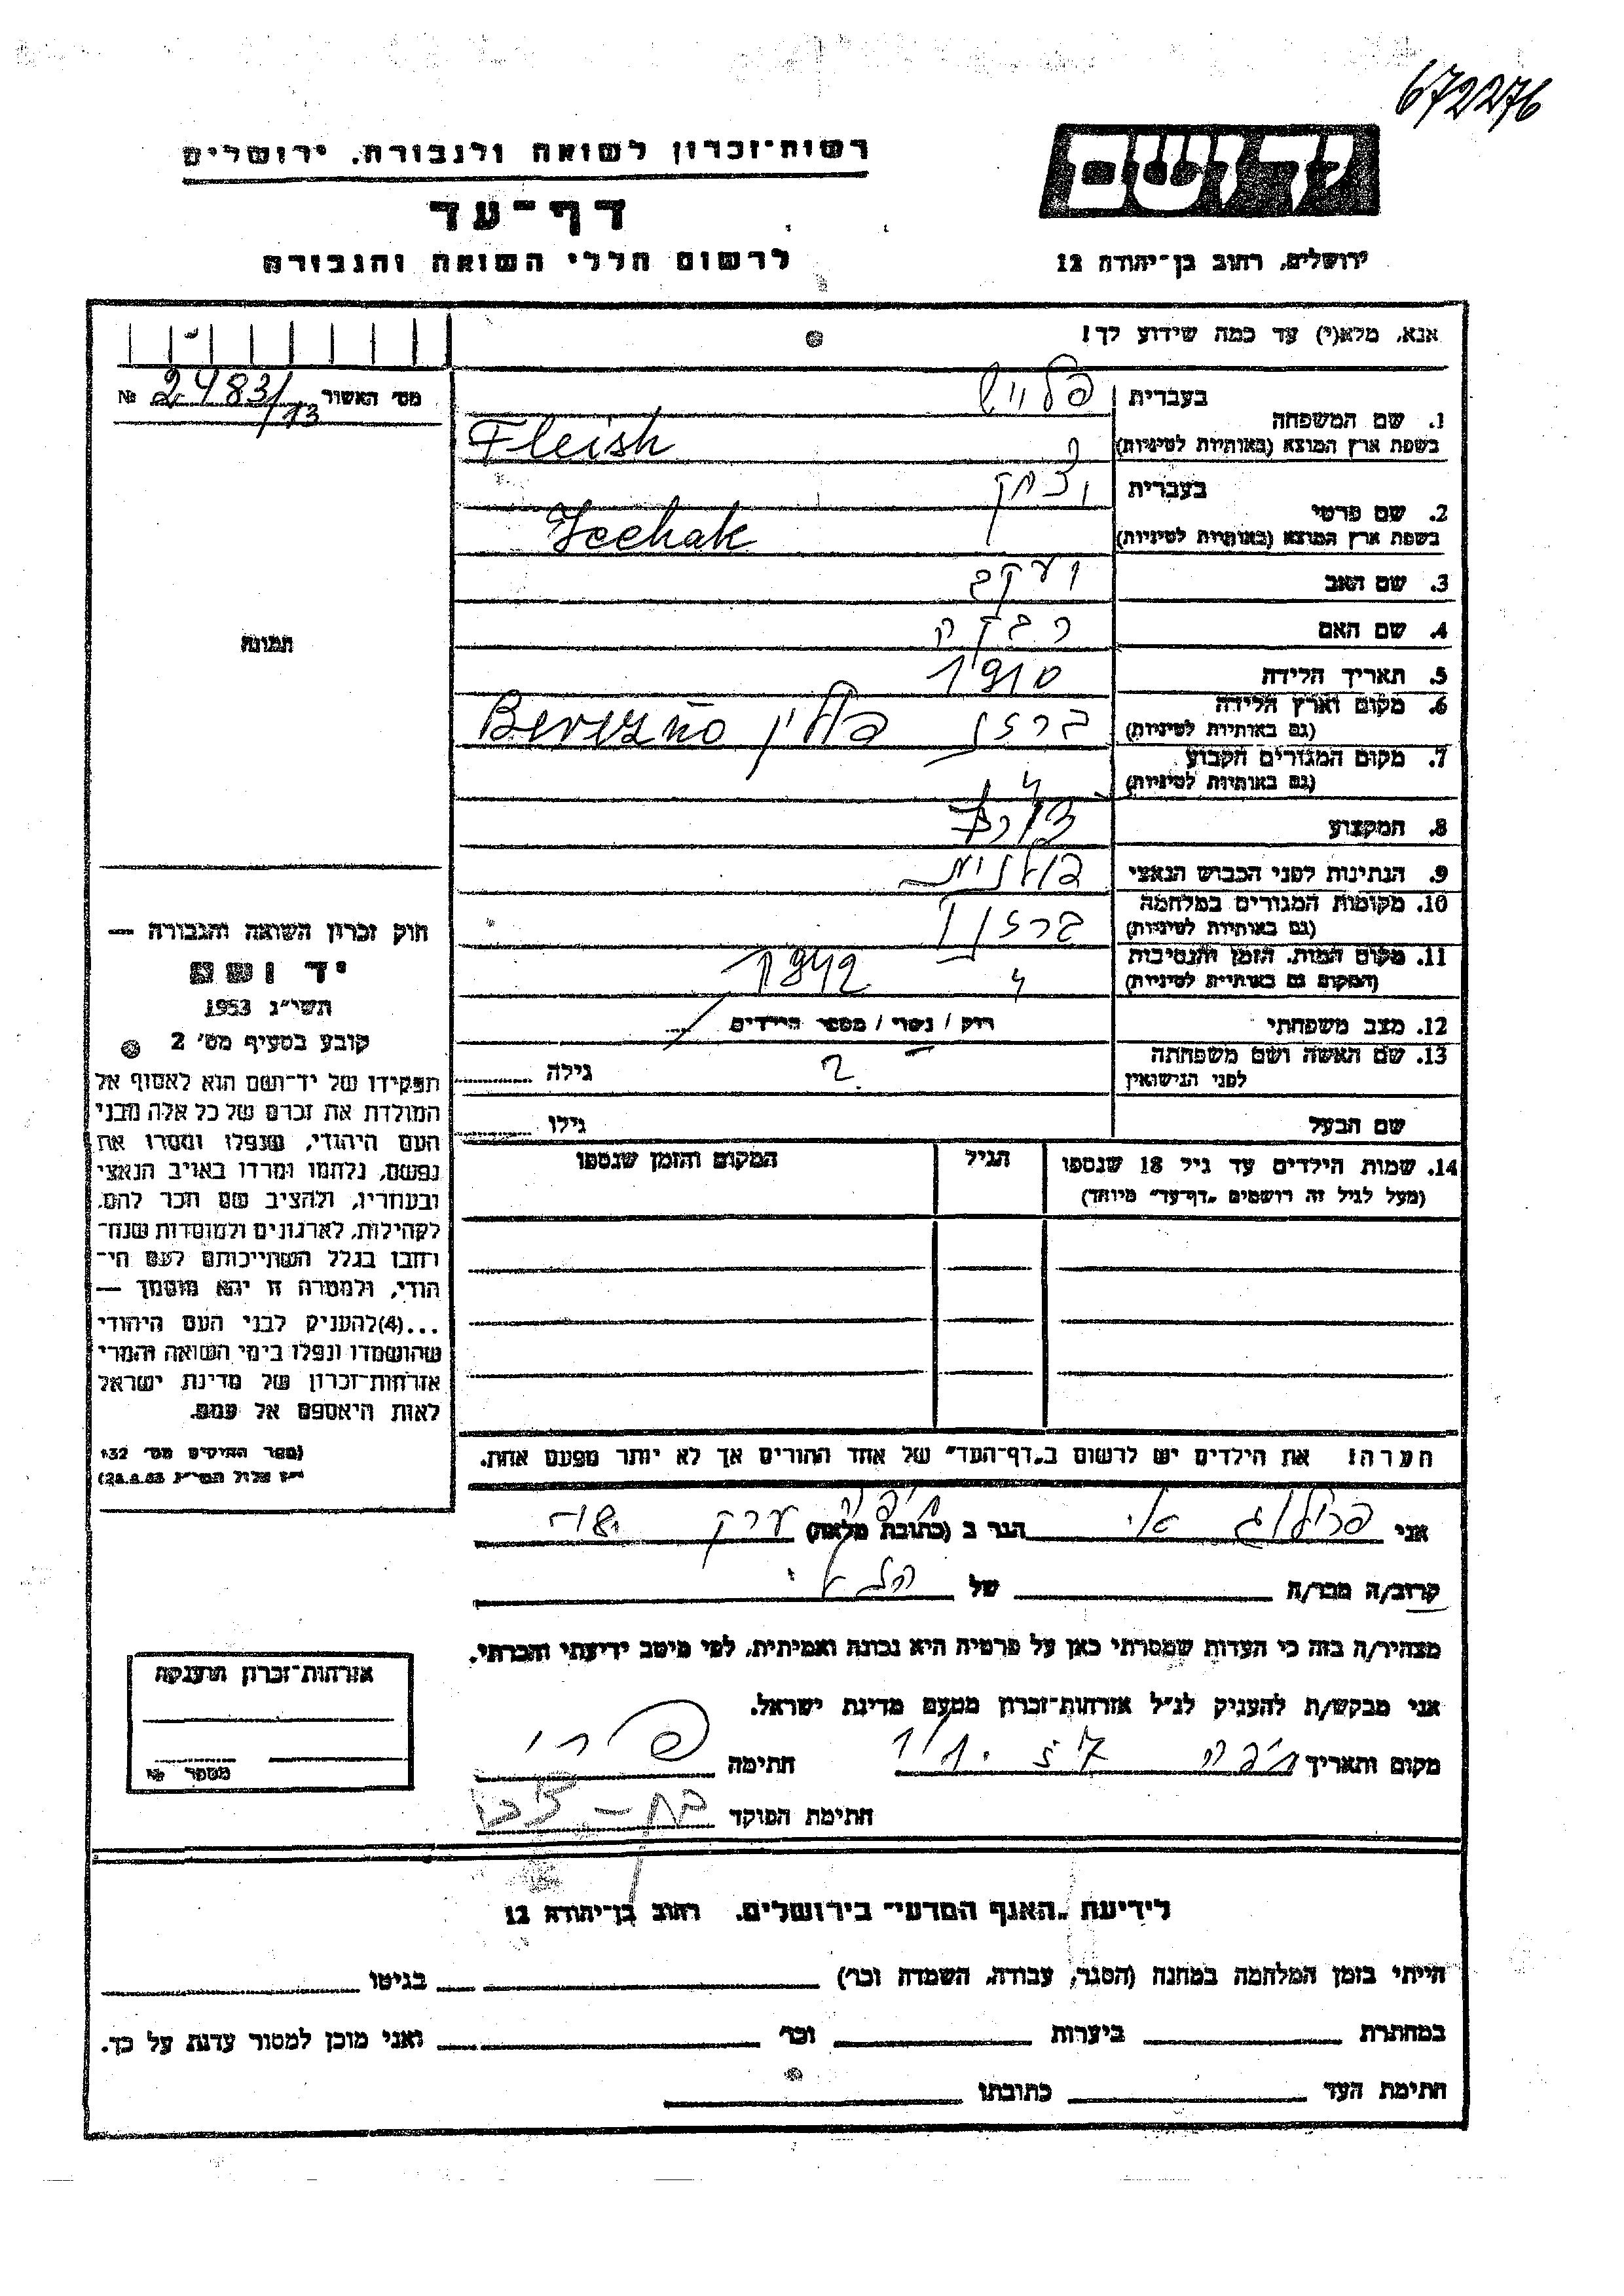 672276
יד ושם
רשות-זכרון לשואה ולגבורה, ירושלים
דף-עד
ירושלים, רחוב בן-יהודה 12
לרשום חללי השואה והגבורה
אנא, מלא(י) עד כמה שידוע לך!
מס׳ האשור 2483/13 №
1. שם המשפחה
בעברית פלייש
בשפת ארץ המוצא (באותיות לטיניות) Fleish
2. שם פרטי
בעברית יצחק
בשפת ארץ המוצא (באותיות לטיניות) Icchak
3. שם האב יעקב
4. שם האם רבקה
5. תאריך הלידה 1910
6. מקום וארץ הלידה
(גם באותיות לטיניות) ברזנו פולין Berezno
7. מקום המגורים הקבוע
(גם באותיות לטיניות) "
8. המקצוע
9. הנתינות לפני הכבוש הנאצי פולנית
10. מקומות המגורים במלחמה
(גם באותיות לטיניות) ברזנו
11. מקום המות, הזמן והנסיבות
(המקום גם באותיות לטיניות) " 1942
12. מצב משפחתי רוק / נשוי / מספר הילדים
13. שם האשה ושם משפחתה
לפני הנישואין ? גילה
שם הבעל גילו
14. שמות הילדים עד גיל 18 שנספו
(מעל לגיל זה רושמים „דף-עד" מיוחד)
הגיל
המקום והזמן שנספו
הערה! את הילדים יש לרשום ב„דף-העד" של אחד ההורים אך לא יותר מפעם אחת.
תמונה
חוק זכרון השואה והגבורה —
יד ושם
תשי״ג 1953
קובע בסעיף מס׳ 2
תפקידו של יד-ושם הוא לאסוף אל
המולדת את זכרם של כל אלה מבני
העם היהודי, שנפלו ומסרו את
נפשם, נלחמו ומרדו באויב הנאצי
ובעוזריו, ולהציב שם וזכר להם,
לקהילות, לארגונים ולמוסדות שנח-
רבו בגלל השתייכותם לעם הי-
הודי, ולמטרה זו יהא מוסמך —
...(4) להעניק לבני העם היהודי
שהושמדו ונפלו בימי השואה והמרי
אזרחות-זכרון של מדינת ישראל
לאות היאספם אל עמם.
(ספר החוקים מס׳ 132
י״ז אלול תשי״ג 28.8.53)
אני הגר ב (כתובת מלאה) חיפה
קרוב/ה מכר/ה של הנ״ל
מצהיר/ה בזה כי העדות שמסרתי כאן על פרטיה היא נכונה ואמיתית, לפי מיטב ידיעתי והכרתי.
אני מבקש/ת להעניק לנ״ל אזרחות-זכרון מטעם מדינת ישראל.
מקום ותאריך חיפה חתימה
חתימת הפוקד
אזרחות-זכרון הוענקה
מספר №
לידיעת „האגף המדעי" בירושלים, רחוב בן-יהודה 12
הייתי בזמן המלחמה במחנה (הסגר, עבודה, השמדה וכו׳) בגיטו
במחתרת ביערות וכו׳ ואני מוכן למסור עדות על כך.
חתימת העד כתובתו